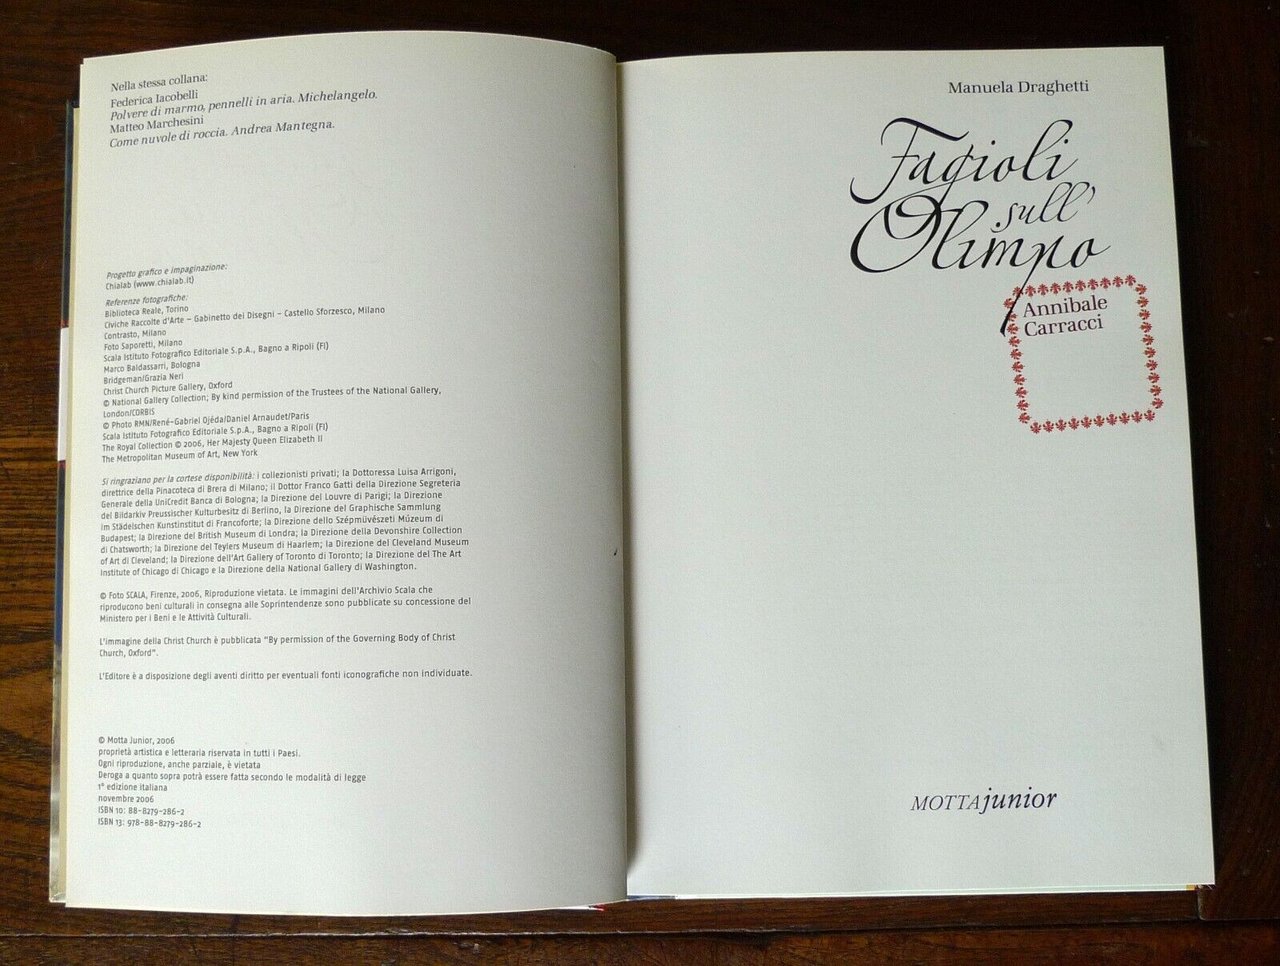 Nella stessa collana:
Federica Iacobelli
Polvere di marmo, pennelli in aria. Michelangelo.
Matteo Marchesini
Come nuvole di roccia. Andrea Mantegna.
Progetto grafico e impaginazione:
Chialab (www.chialab.it)
Referenze fotografiche:
Biblioteca Reale, Torino
Civiche Raccolte d'Arte – Gabinetto dei Disegni – Castello Sforzesco, Milano
Contrasto, Milano
Foto Saporetti, Milano
Scala Istituto Fotografico Editoriale S.p.A., Bagno a Ripoli (FI)
Marco Baldassarri, Bologna
Bridgeman/Grazia Neri
Christ Church Picture Gallery, Oxford
© National Gallery Collection; By kind permission of the Trustees of the National Gallery,
London/CORBIS
© Photo RMN/René-Gabriel Ojéda/Daniel Arnaudet/Paris
Scala Istituto Fotografico Editoriale S.p.A., Bagno a Ripoli (FI)
The Royal Collection © 2006, Her Majesty Queen Elizabeth II
The Metropolitan Museum of Art, New York
Si ringraziano per la cortese disponibilità: i collezionisti privati; la Dottoressa Luisa Arrigoni,
direttrice della Pinacoteca di Brera di Milano; il Dottor Franco Gatti della Direzione Segreteria
Generale della UniCredit Banca di Bologna; la Direzione del Louvre di Parigi; la Direzione
del Bildarkiv Preussischer Kulturbesitz di Berlino, la Direzione del Graphische Sammlung
im Städelschen Kunstinstitut di Francoforte; la Direzione dello Szépmüvészeti Múzeum di
Budapest; la Direzione del British Museum di Londra; la Direzione della Devonshire Collection
di Chatsworth; la Direzione del Teylers Museum di Haarlem; la Direzione del Cleveland Museum
of Art di Cleveland; la Direzione dell'Art Gallery of Toronto di Toronto; la Direzione del The Art
Institute of Chicago di Chicago e la Direzione della National Gallery di Washington.
© Foto SCALA, Firenze, 2006, Riproduzione vietata. Le immagini dell'Archivio Scala che
riproducono beni culturali in consegna alle Soprintendenze sono pubblicate su concessione del
Ministero per i Beni e le Attività Culturali.
L'immagine della Christ Church è pubblicata "By permission of the Governing Body of Christ
Church, Oxford".
L'Editore è a disposizione degli aventi diritto per eventuali fonti iconografiche non individuate.
© Motta Junior, 2006
proprietà artistica e letteraria riservata in tutti i Paesi.
Ogni riproduzione, anche parziale, è vietata
Deroga a quanto sopra potrà essere fatta secondo le modalità di legge
1° edizione italiana
novembre 2006
ISBN 10: 88-8279-286-2
ISBN 13: 978-88-8279-286-2
Manuela Draghetti
Fagioli
sull'
Olimpo
Annibale
Carracci
MOTTAjunior